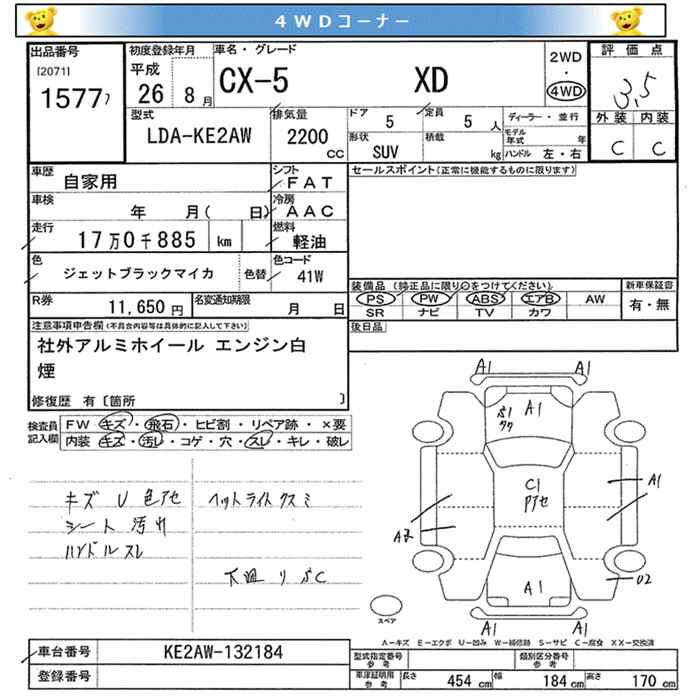 4WDコーナー
出品番号 初度登録年月 車名・グレード 2WD 評価点
[2071] 平成 CX-5 XD ・ 3.5
1577ﾌ 26 8月 4WD 外装 内装
型式 排気量 ドア 5 定員 5 人 ディーラー・並行 C C
LDA-KE2AW 2200 cc 形状 SUV 積載 kg モデル年式 年
ハンドル 左・右
車歴 自家用 シフト FAT セールスポイント(正常に機能するものに限ります)
車検 年 月( 日) 冷房 AAC
走行 17万0千885 km 燃料 軽油
色 ジェットブラックマイカ 色替 色コード 41W
装備品 (純正品に限り○をつけてください) 新車保証書
R券 11,650円 名変通知期限 月 日 PS PW ABS エアB AW 有・無
SR ナビ TV カワ
注意事項申告欄(不具合内容等は具体的に記入して下さい) 後日品
社外アルミホイール エンジン白
煙
修復歴 有〔箇所 〕
検査員 FW キズ・飛石・ヒビ割・リペア跡・×要
記入欄 内装 キズ・汚レ・コゲ・穴・スレ・キレ・破レ
キズ U 色アセ ヘットライトクスミ
シート 汚れ
ハンドルスレ
下廻り S C
A1 A1
A1
C1
アセ
A1
A2
U2
A1
A1 A1
スペア
A-キズ E-エクボ U-凹み W-補修跡 S-サビ C-腐食 XX-交換済
車台番号 KE2AW-132184 型式指定番号 参考 類別区分番号 参考
登録番号 車庫証明用 参考 長さ 454 cm 幅 184 cm 高さ 170 cm